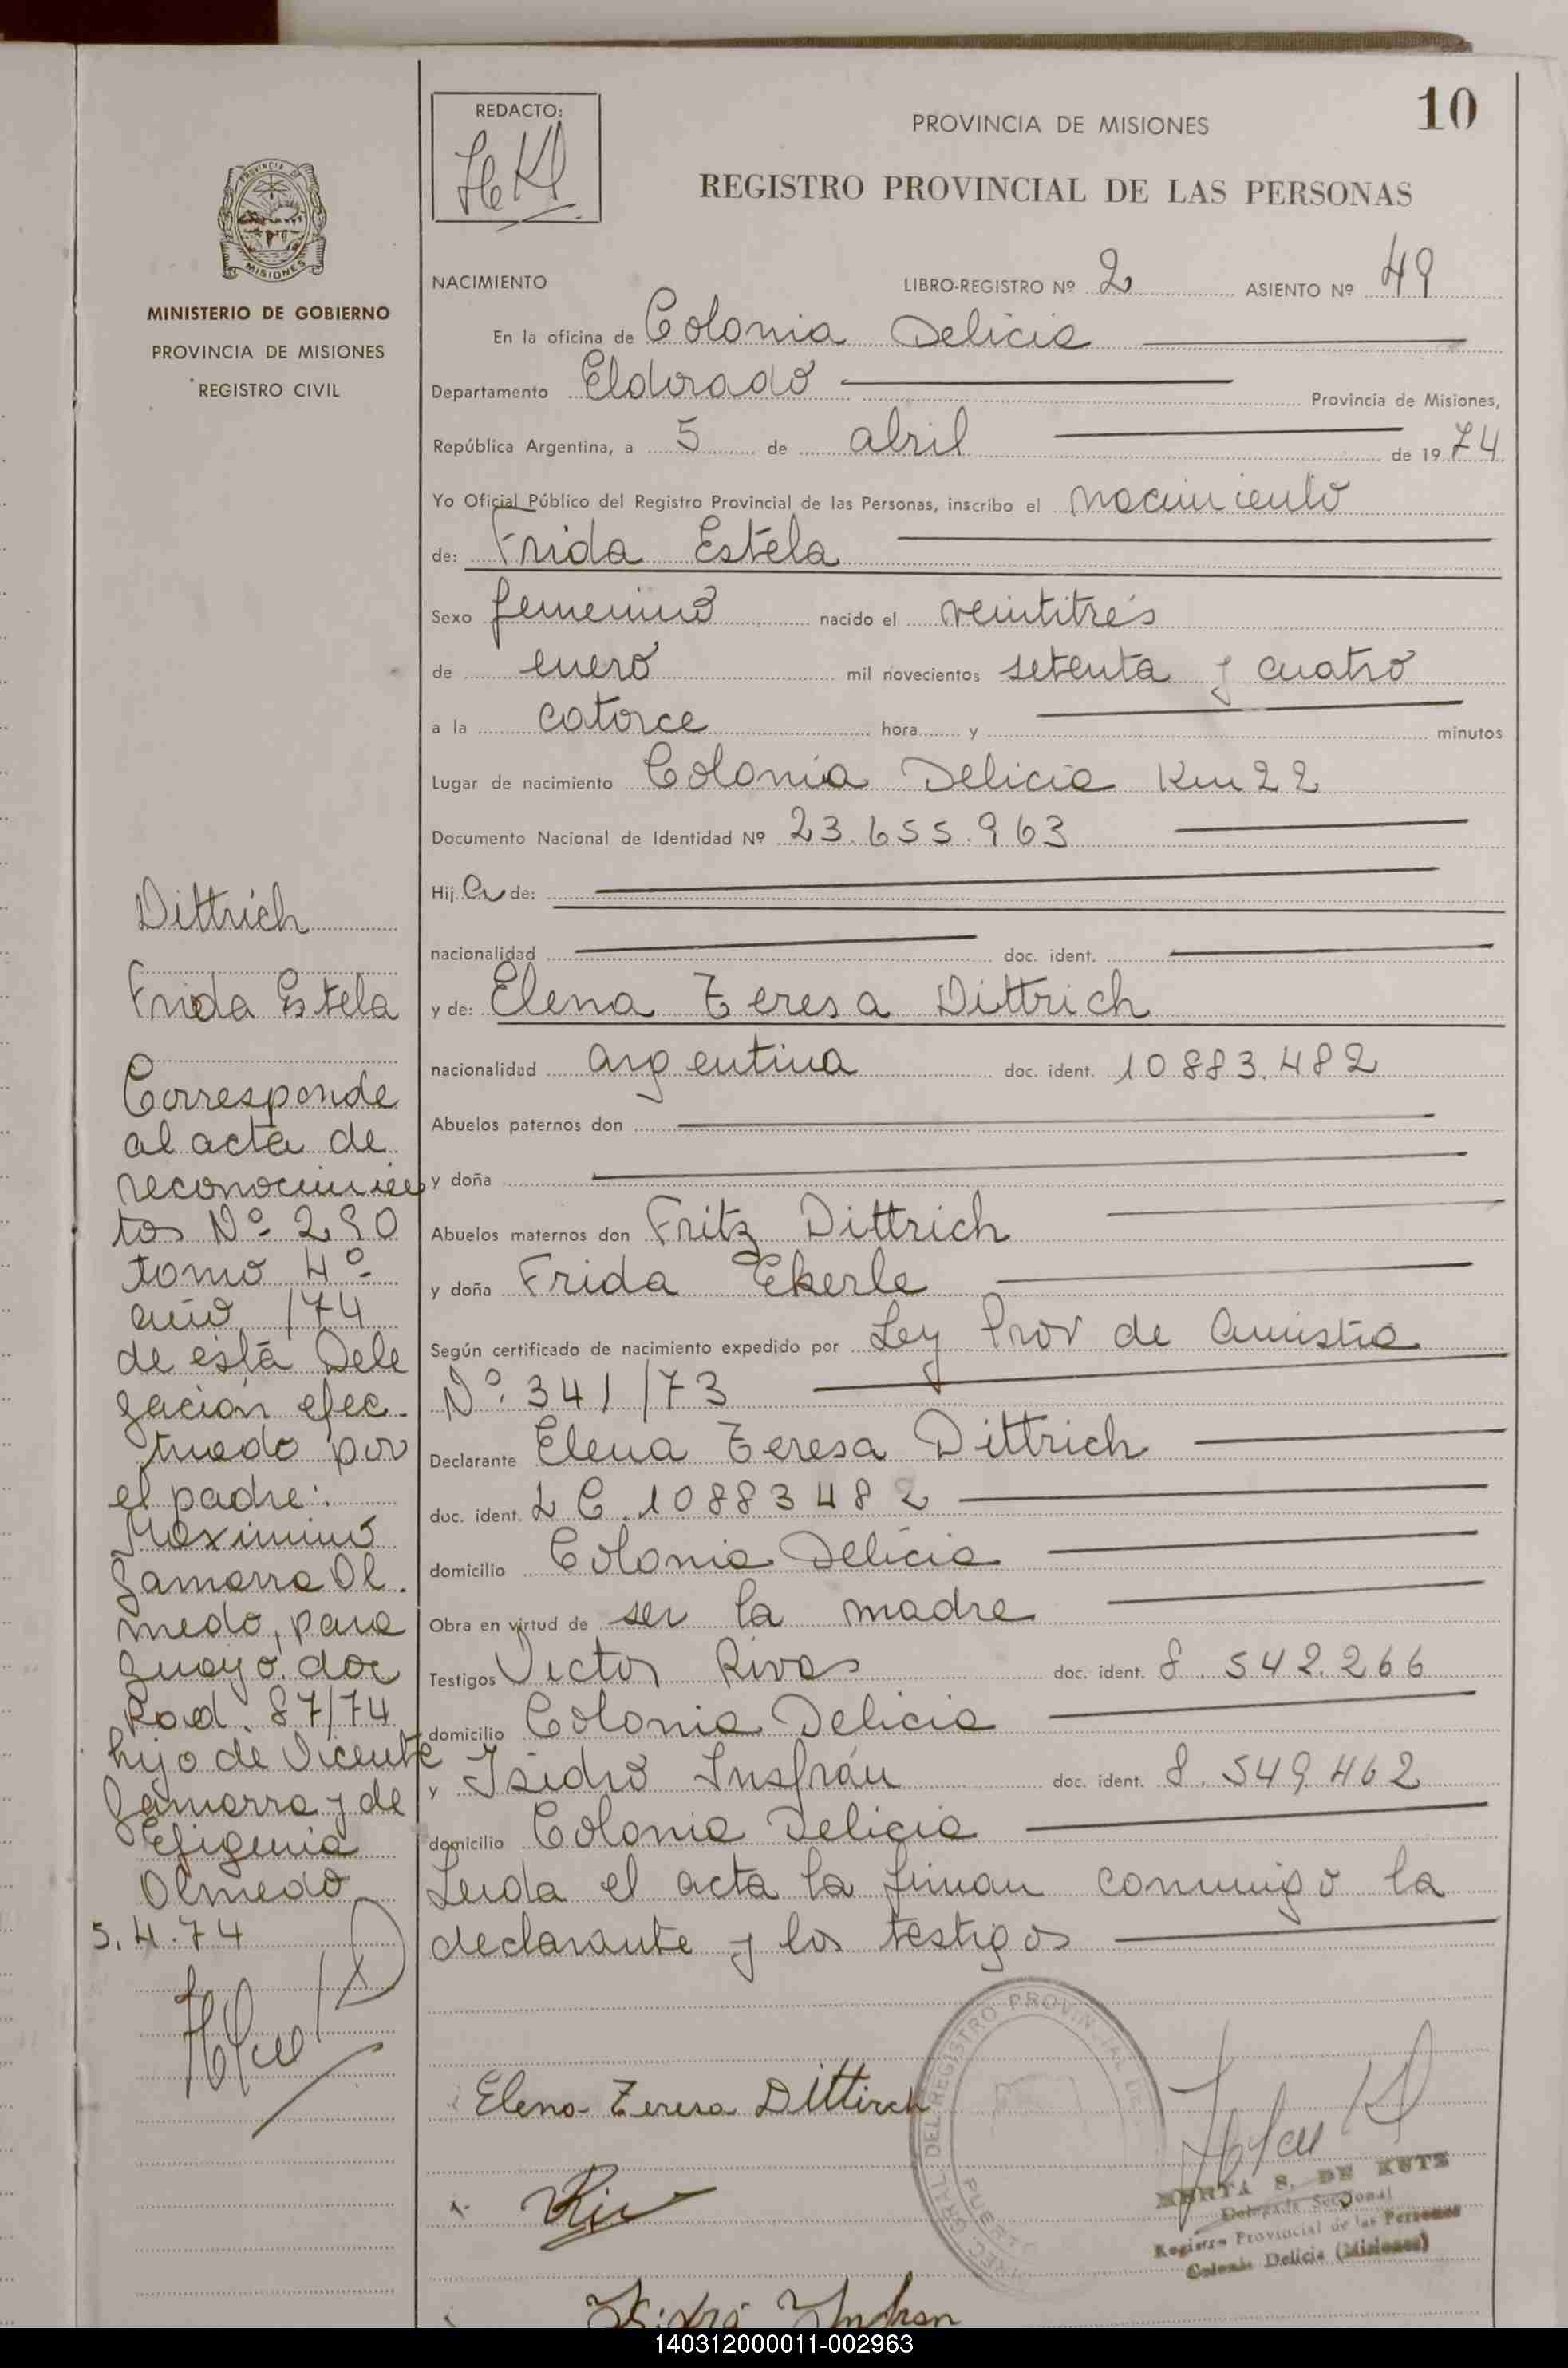 10
REDACTO:
PROVINCIA DE MISIONES
REGISTRO PROVINCIAL DE LAS PERSONAS
PROVINCIA DE
MISIONES
MINISTERIO DE GOBIERNO
PROVINCIA DE MISIONES
REGISTRO CIVIL
NACIMIENTO LIBRO-REGISTRO Nº 2 ASIENTO Nº 49
En la oficina de Colonia Delicia
Departamento Eldorado Provincia de Misiones,
República Argentina, a 5 de abril de 1974
Yo Oficial Público del Registro Provincial de las Personas, inscribo el nacimiento
de: Frida Estela
Sexo femenino nacido el veintitrés
de enero mil novecientos setenta y cuatro
a la catorce hora y minutos
Lugar de nacimiento Colonia Delicia Km 22
Documento Nacional de Identidad Nº 23.655.963
Hija de:
nacionalidad doc. ident.
y de: Elena Teresa Dittrich
nacionalidad argentina doc. ident. 10883.482
Abuelos paternos don
y doña
Abuelos maternos don Fritz Dittrich
y doña Frida Ekerle
Según certificado de nacimiento expedido por Ley Prov de Amistia
Nº 341/73
Declarante Elena Teresa Dittrich
doc. ident. L C. 10883482
domicilio Colonia Delicia
Obra en virtud de ser la madre
Testigos Victor Rivas doc. ident. 8.542.266
domicilio Colonia Delicia
y Isidro Insfrán doc. ident. 8.549.462
domicilio Colonia Delicia
Leida el acta la firman conmigo la
declarante y los testigos
Dittrich
Frida Estela
Corresponde
al acta de
reconocimien
tos Nº 290
tomo 4º
año 174
de está Dele
gación efec.
tuado por
el padre:
Maximino
Gamarra Ol.
medo, para
guayo doc
Rad. 87/74
hijo de Vicente
Gamarra y de
Efigenia
Olmedo
5.4.74
Elena Teresa Dittirch
Isidro Insfran
DIREC. GRAL. DEL REGISTRO PROVINCIAL DE
PUERTO
MERTA S. DE KUTZ
Delegada Seccional
Registro Provincial de las Personas
Colonia Delicia (Misiones)
140312000011-002963